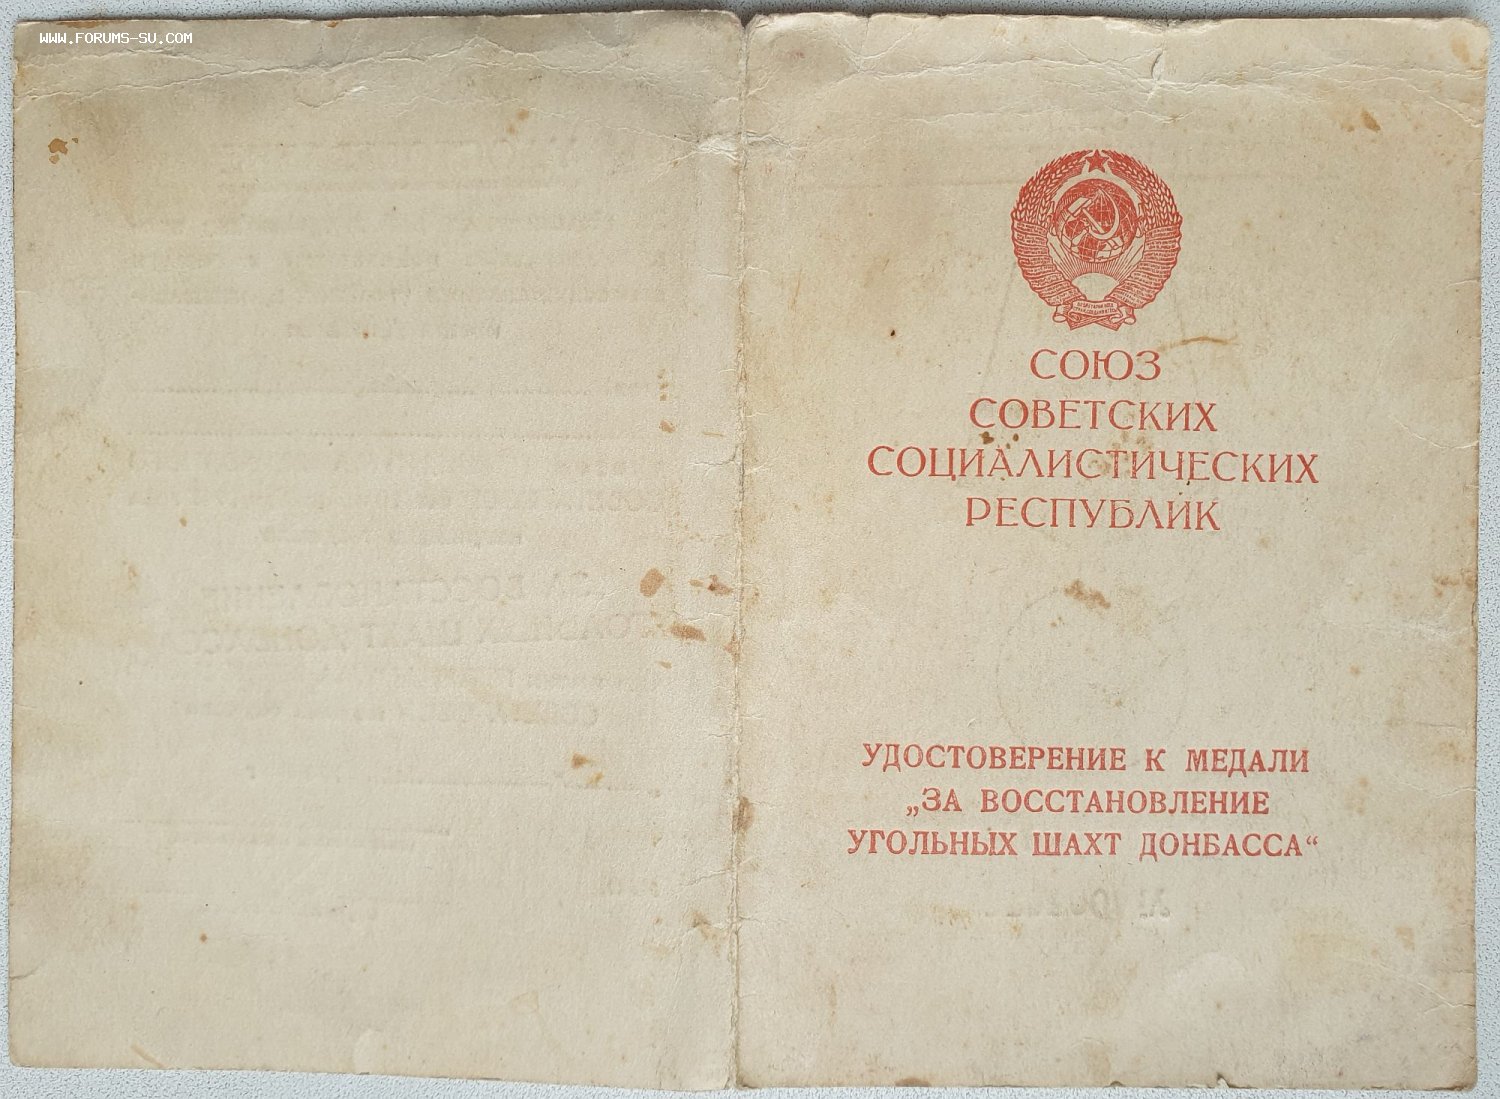 WWW.FORUMS-SU.COM
СОЮЗ
СОВЕТСКИХ
СОЦИАЛИСТИЧЕСКИХ
РЕСПУБЛИК
УДОСТОВЕРЕНИЕ К МЕДАЛИ
„ЗА ВОССТАНОВЛЕНИЕ
УГОЛЬНЫХ ШАХТ ДОНБАССА“